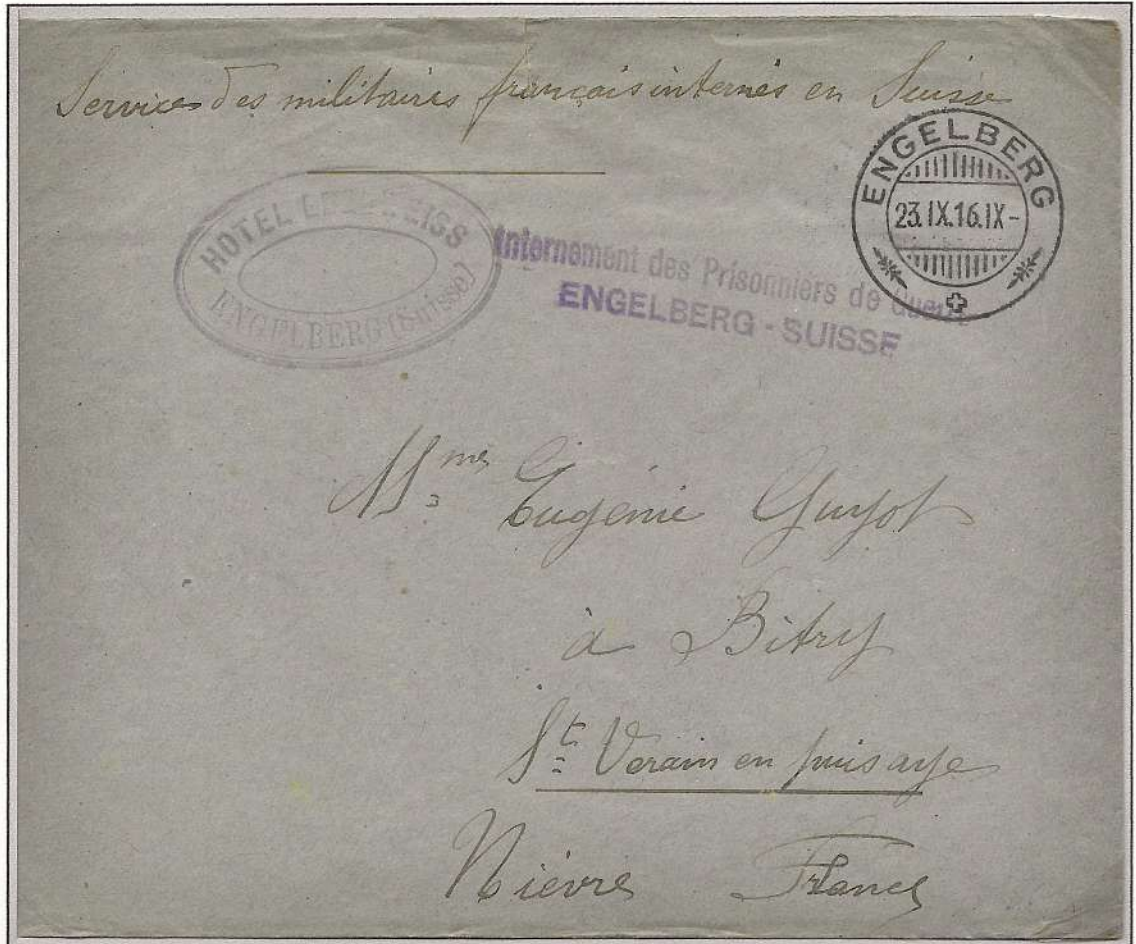 Service des militaires français internés en Suisse
ENGELBERG
23.IX.16.IX-
HOTEL EDELWEISS
ENGELBERG (Suisse)
Internement des Prisonniers de Guerre
ENGELBERG - SUISSE
Mme Eugénie Guyot
à Bitry
St Verain en puisaye
Nièvre France